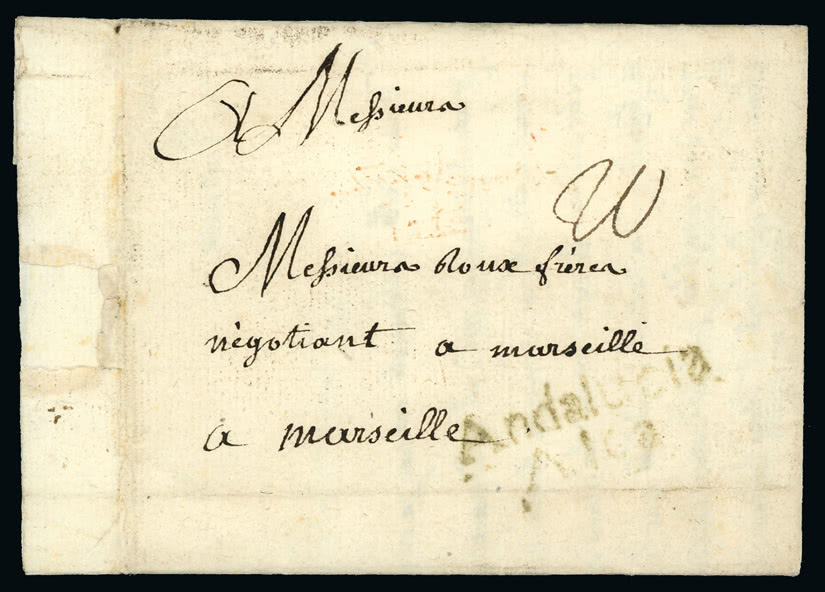 A Messieurs
Messieurs Roux freres
négotiant a marseille
a marseille
Andalucia
Alca